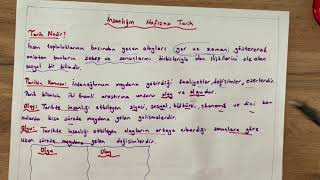 İnsanlığın Hafızası Tarih
Tarih Nedir?
İnsan topluluklarının başından geçen olayları yer ve zaman göstererek
anlatan bunların sebep ve sonuçlarını birbirleriyle olan ilişkilerini ele alan
sosyal bir bilimdir.
Tarihin Konusu: İnsanoğlunun meydana getirdiği faaliyetler, değişimler, eserlerdir.
Tarih biliminin iki önemli araştırma unsuru olay ve olgudur.
Olay: Tarihte insanlığı etkileyen siyasi, sosyal, kültürel, ekonomik ve dini
konularda kısa sürede meydana gelen gelişmelerdir.
Olgu: Tarihte insanlığı etkileyen olayların ortaya çıkardığı sonuçlara göre
uzun sürede meydana gelen değişimlerdir.
Olgu Olay